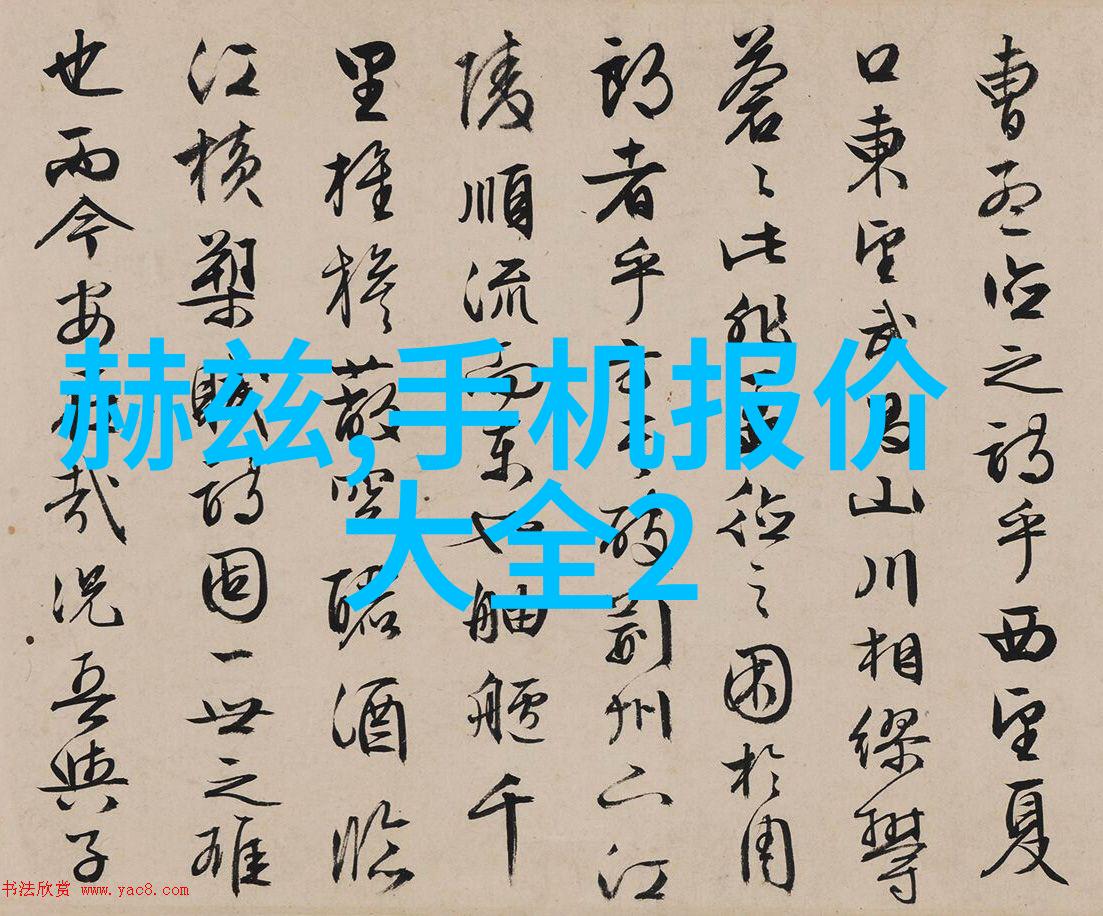 曹孟德之詩乎西望夏
口東望武昌山川相繆鬱
蒼〻此非孟德之困於周
郎者乎方其破荊州下江
陵順流而東也舳艫千
里旌旗蔽空釃酒臨
江横槊賦詩固一世之雄
也而今安在哉況吾與子
赫兹,手机报价
大全2
书法欣赏 www.yac8.com